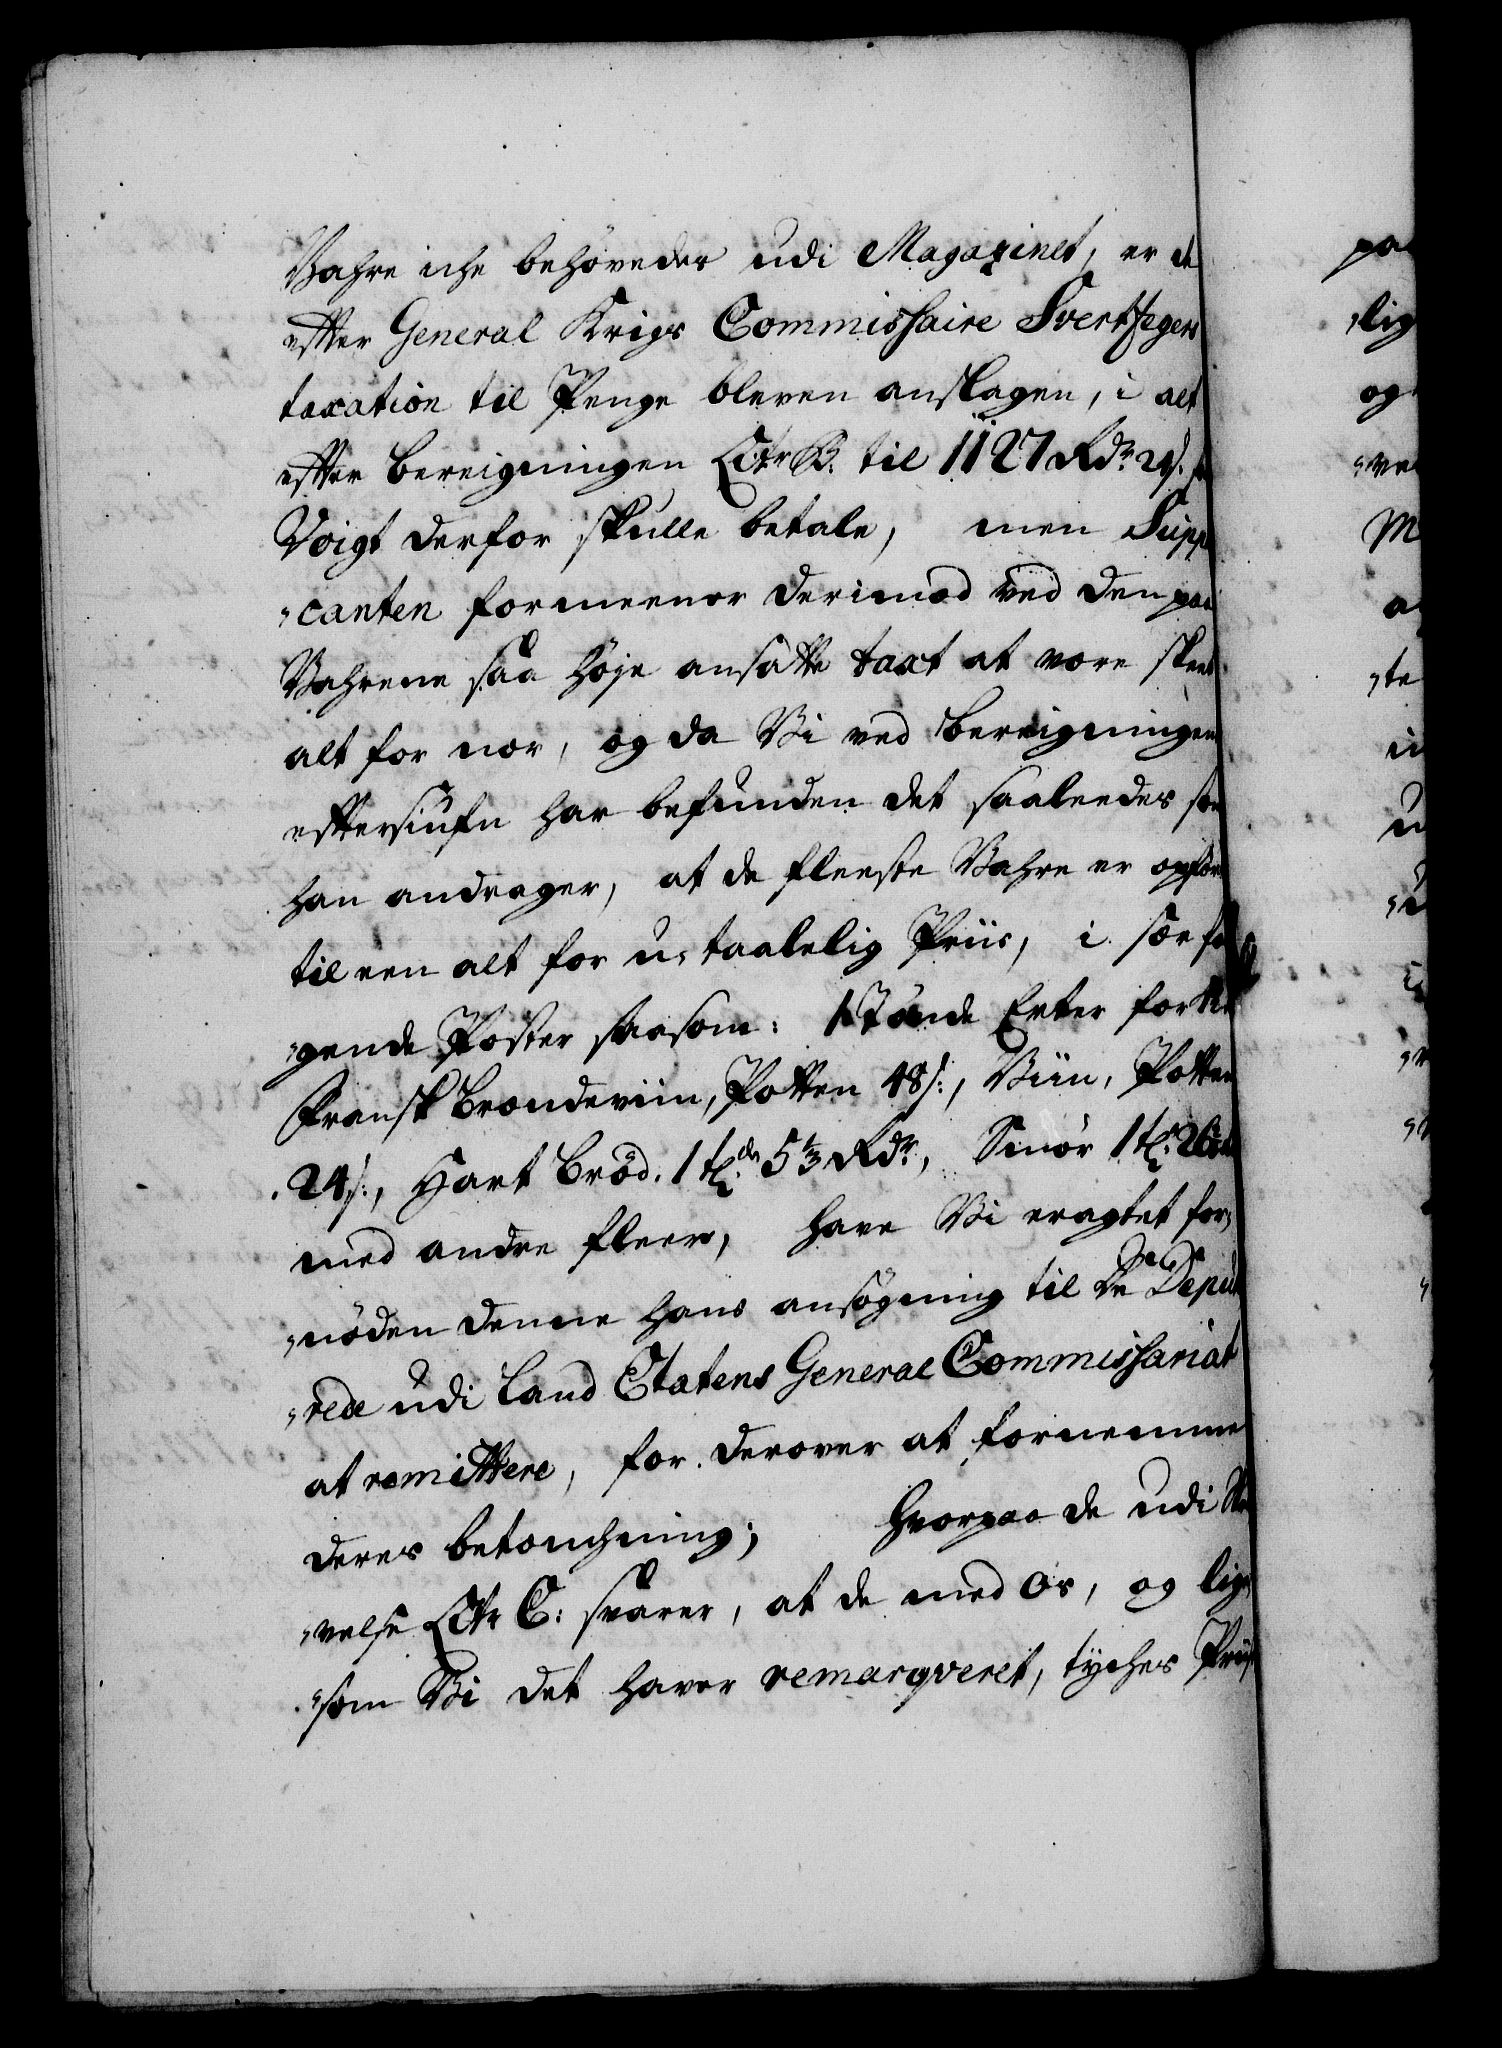 Vahre iche behøvedes udi Magazinet, er de
efter General Krigs Commissaire Svertfegers
taxation til Penge bleven anslagen, i alt
efter bereigningen Litr B. til 1127 Rdr
Voigt derfor skulle betale, men Supp
canten formeener derimod ved den paa
Vahrene saa høje ansatte taxt at være skeed
alt for nær, og da Vi ved bereigningens
eftersiufn har befunden det saaleedes som
han andrager, at de fleeste Vahre er opført
til een alt for u-taalelig Priis, i sær
gende Poster saasom: 1 Tønde Erter for
Fransk Brændeviin, Potten 48 s:, Viin, Potten
24 s:, Hart Brød. 1 tde 5 1/3 Rdr, Smør 1 td:
med andre fleere, have Vi eragtet for-
nøden denne hans ansøgning til De Deput
rede udi Land Etatens General Commissariat
at remittere, for derover at fornemme
deres betenchning; Hvorpaa de udi
velse Litr C: svarer, at de med Os, og lige
som Vi det haver remarqveret, tyches Priis